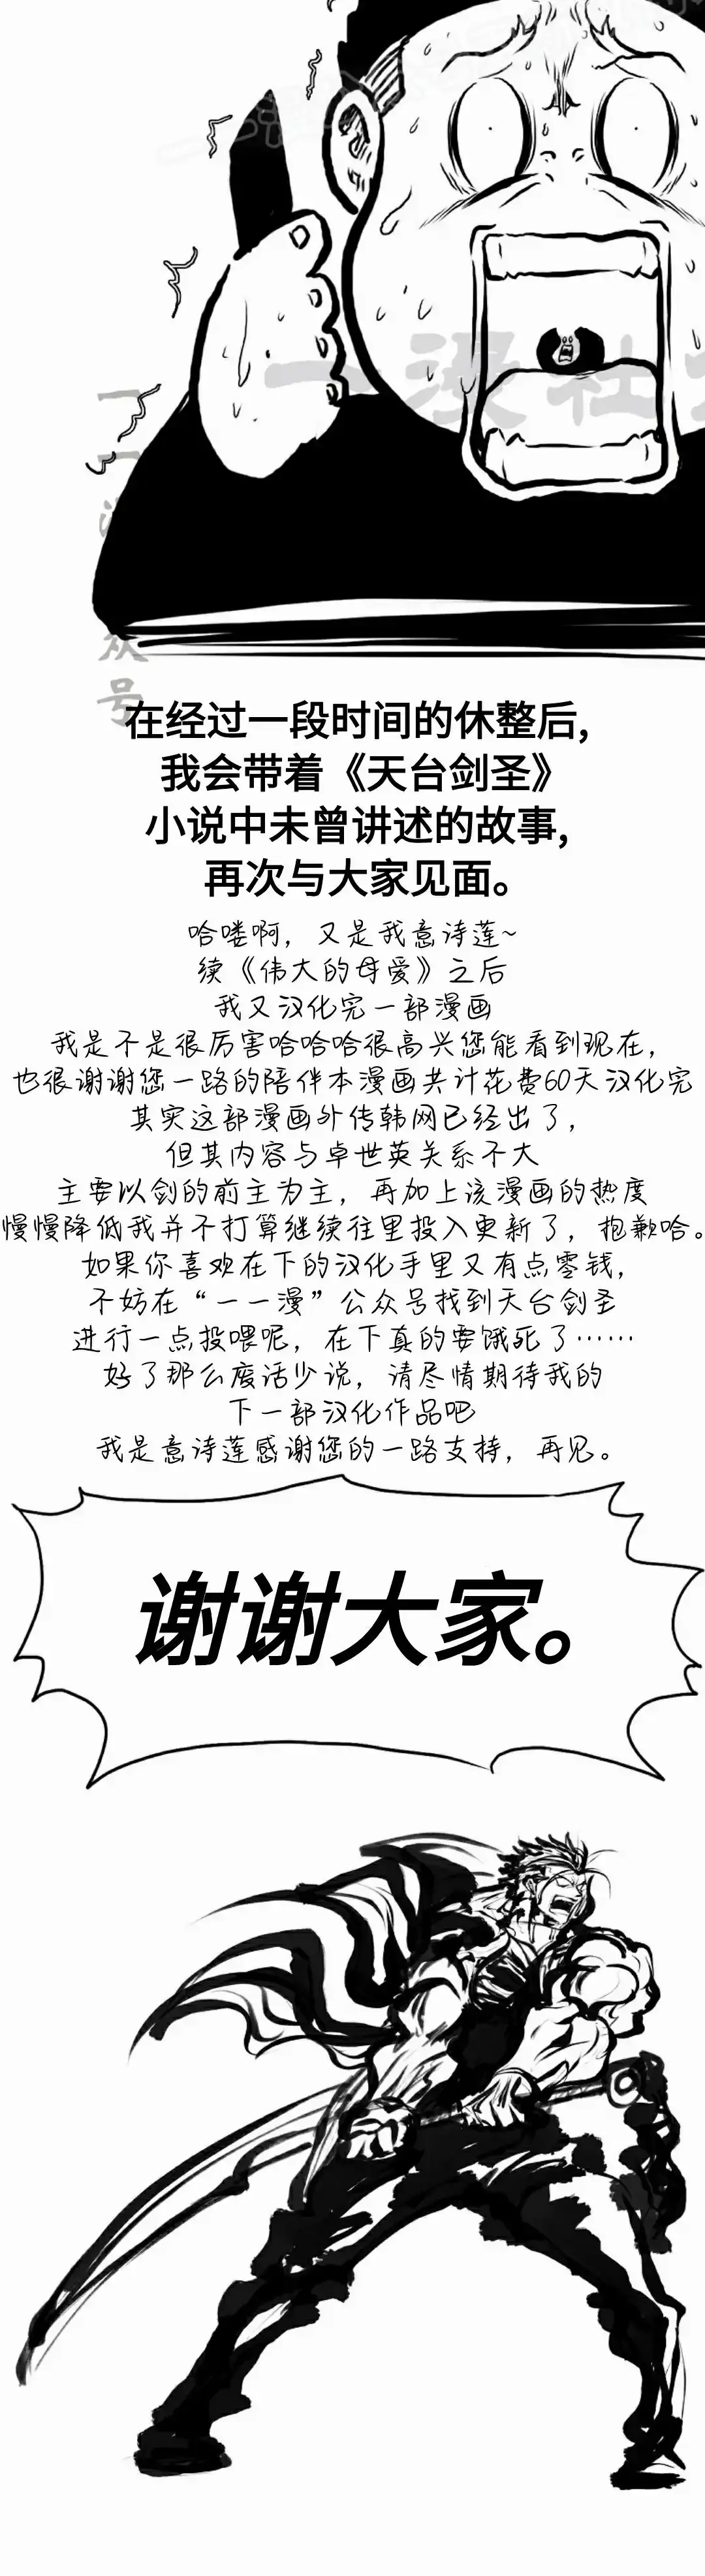 一漫社
众号
在经过一段时间的休整后,
我会带着《天台剑圣》
小说中未曾讲述的故事,
再次与大家见面。
哈喽啊，又是我意诗莲~
续《伟大的母爱》之后
我又汉化完一部漫画
我是不是很厉害哈哈哈很高兴您能看到现在，
也很谢谢您一路的陪伴本漫画共计花费60天汉化完
其实这部漫画外传韩网已经出了，
但其内容与卓世英关系不大
主要以剑的前主为主，再加上该漫画的热度
慢慢降低我并不打算继续往里投入更新了，抱歉哈。
如果你喜欢在下的汉化手里又有点零钱，
不妨在“一一漫”公众号找到天台剑圣
进行一点投喂呢，在下真的要饿死了……
好了那么废话少说，请尽情期待我的
下一部汉化作品吧
我是意诗莲感谢您的一路支持，再见。
谢谢大家。